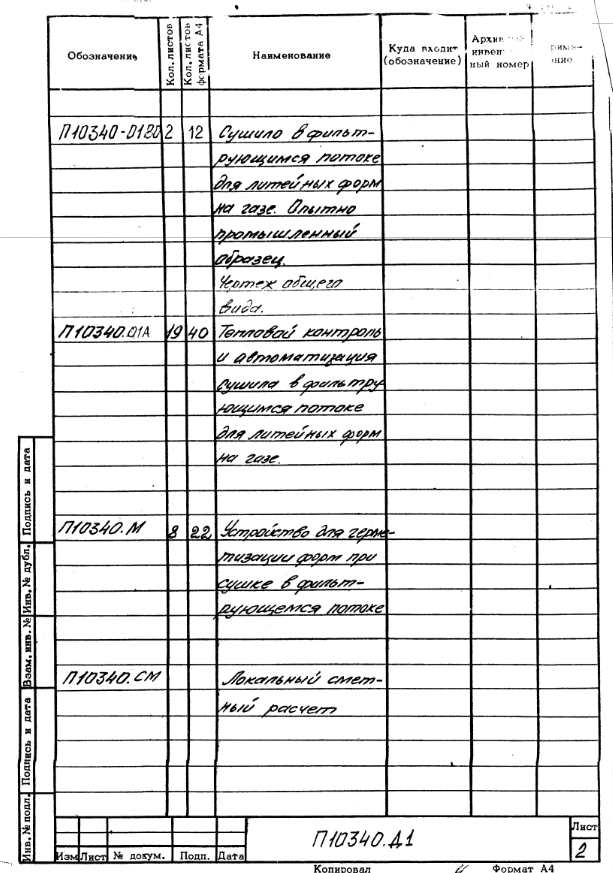 Обозначение Кол. листов Кол. листов формата А4 Наименование Куда входит (обозначение) ный номер
П10340-01 2 12 Сушило в фильт-
рующимся потоке
для литейных форм
на газе. Опытно
промышленный
образец.
Чертеж общего
вида.
П10340.01А 19 40 Тепловой контроль
и автоматизация
сушила в фильтру
ющимся потоке
для литейных форм
на газе.
П10340.М 8 22 Устройство для герме-
тизации форм при
сушке в фильт-
рующемся потоке
П10340.СМ Локальный смет-
ный расчет
Подпись и дата
Инв. № дубл.
Взам. инв. №
Подпись и дата
Инв. № подл.
П10340.Д1
Лист
2
Изм Лист № докум. Подп. Дата
Копировал Формат А4